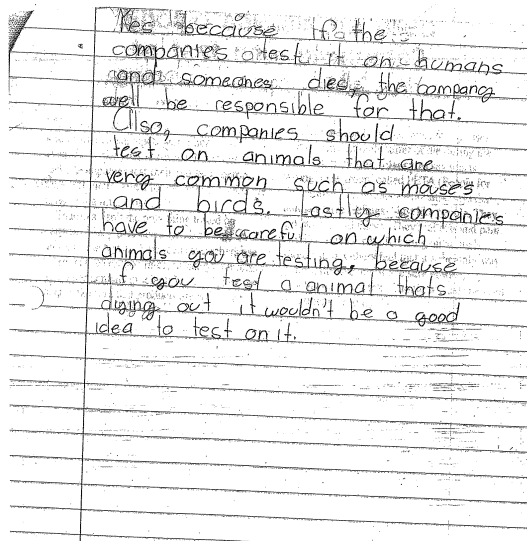 Yes because if the
companies test it on humans
and someones dies, the company
well be responsible for that.
Also, companies should
test on animals that are
very common such as mouses
and birds. Lastly companies
have to be careful on which
animals you are testing, because
if you test a animal thats
dying out it wouldn't be a good
idea to test on it.